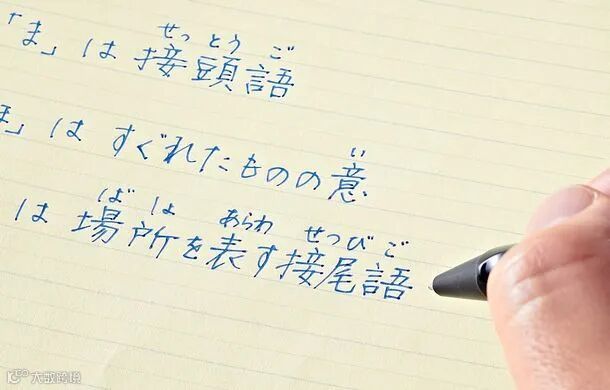 せっとう ご
「ま」は 接頭語
い
」は すぐれたものの意
ば は あらわ せつび ご
は 場所を表す接尾語
大数跨境